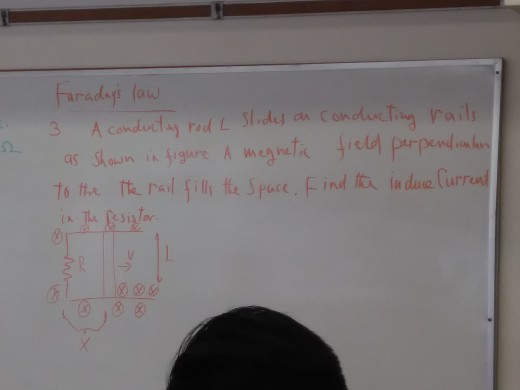 Faraday's law
3 A conducting rod L slides on conducting rails
as shown in figure A megnetic field perpendicular
to the the rail fills the space. Find the induce Current
in the Resistor.
R
V
L
X
Ω